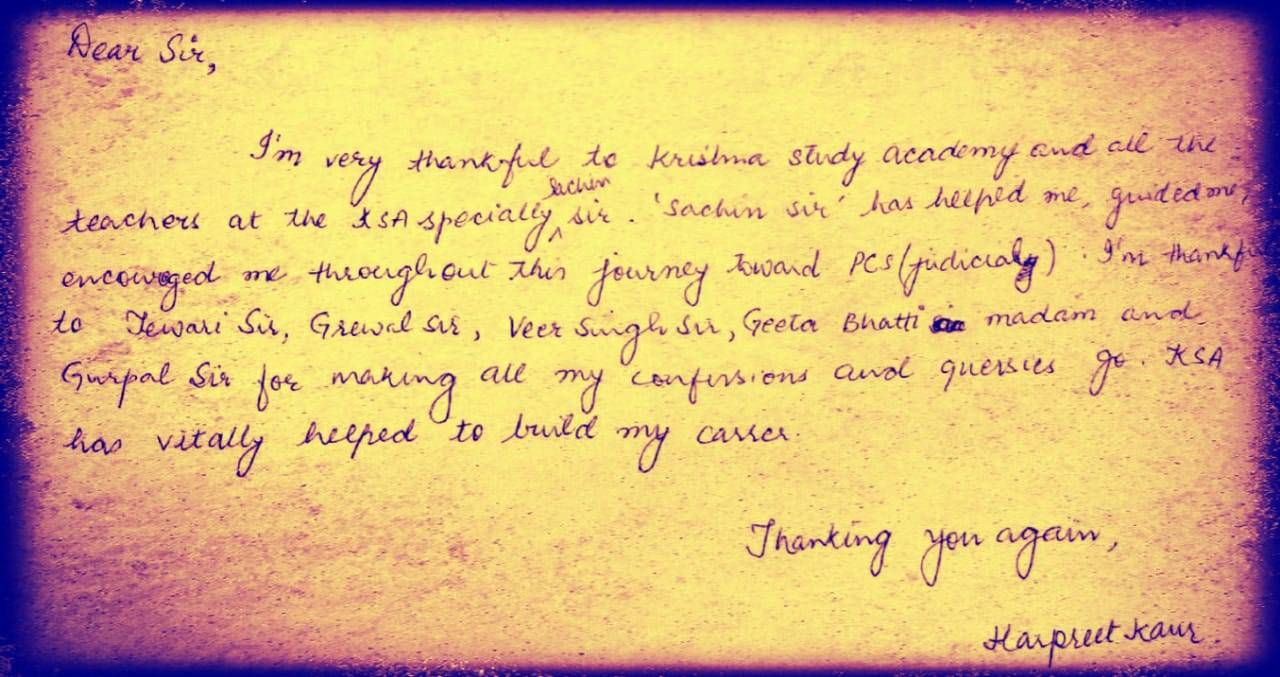 Dear Sir,
I'm very thankful to Krishna study academy and all the
teachers at the KSA specially Sachin sir. 'Sachin sir' has helped me, guided me,
encouraged me throughout this journey toward PCS (judicialy). I'm thankfu
to Tewari Sir, Grewal sir, Veer Singh Sir, Geeta Bhatti madam and
Gurpal Sir for making all my confussions and quersies go. KSA
has vitally helped to build my carrer.
Thanking you again,
Harpreet Kaur.